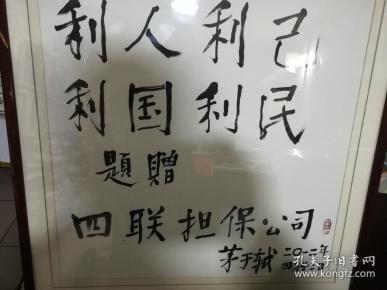 利人利己
利国利民
題贈
四联担保公司
茅于轼 二〇一二年
孔夫子旧书网